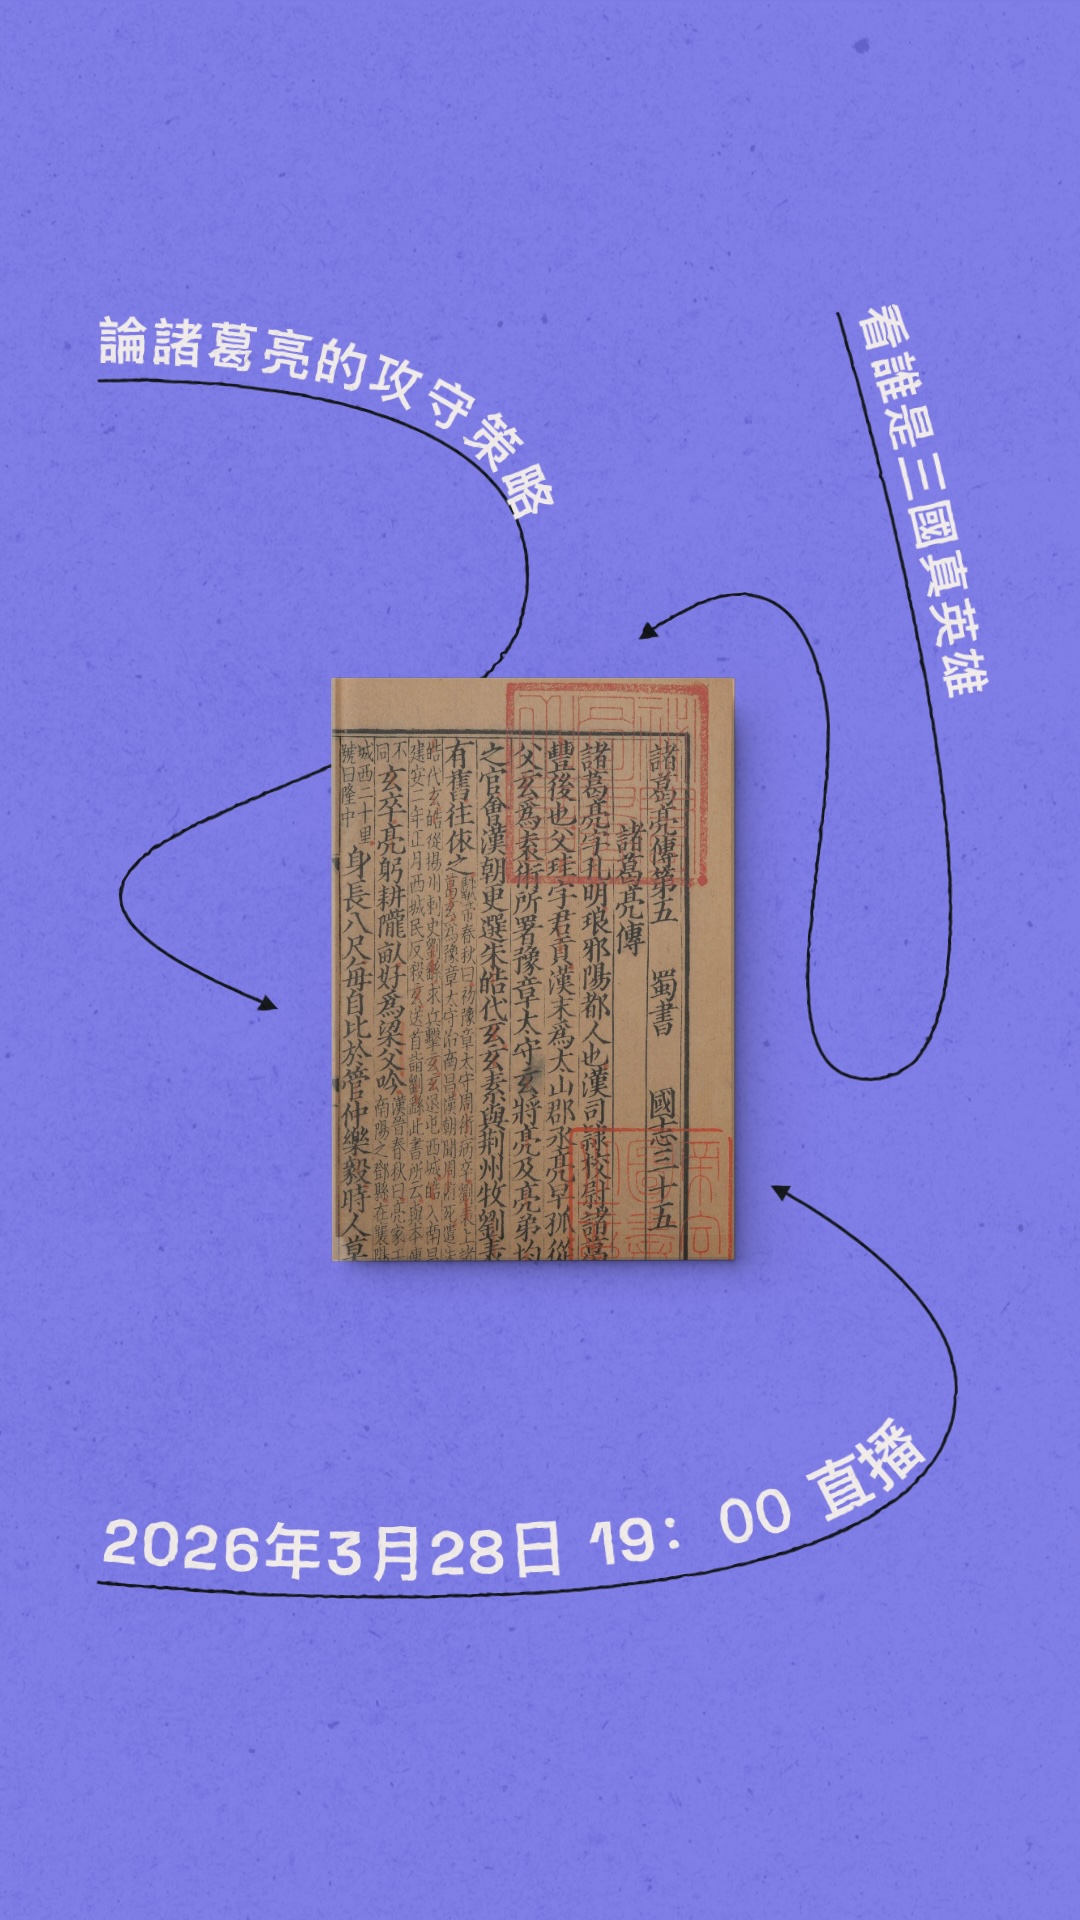 論諸葛亮的攻守策略
看誰是三國真英雄
諸葛亮傳第五 蜀書 國志三十五
諸葛亮傳
諸葛亮字孔明琅邪陽都人也漢司隸校尉諸葛
豐後也父珪字君貢漢末為太山郡丞亮早孤從
父玄為袁術所署豫章太守玄將亮及亮弟均
之官會漢朝更選朱皓代玄玄素與荊州牧劉表
有舊往依之
玄卒亮躬耕隴畝好為梁父吟
身長八尺每自比於管仲樂毅時人莫
2026年3月28日 19：00 直播